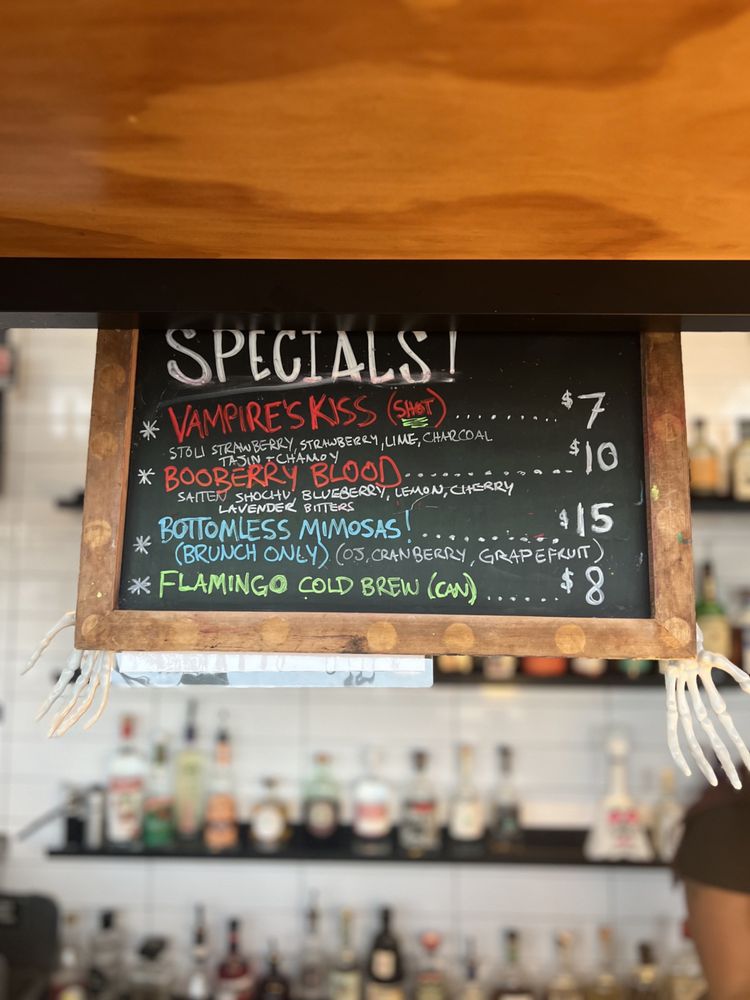 SPECIALS!
* VAMPIRE'S KISS (SHOT) ............ $7
STOLI STRAWBERRY, STRAWBERRY, LIME, CHARCOAL
TAJIN + CHAMOY
* BOOBERRY BLOOD .................... $10
SAITEN SHOCHU, BLUEBERRY, LEMON, CHERRY
LAVENDER BITTERS
* BOTTOMLESS MIMOSAS! .............. $15
(BRUNCH ONLY) (OJ, CRANBERRY, GRAPEFRUIT)
* FLAMINGO COLD BREW (CAN) ...... $8